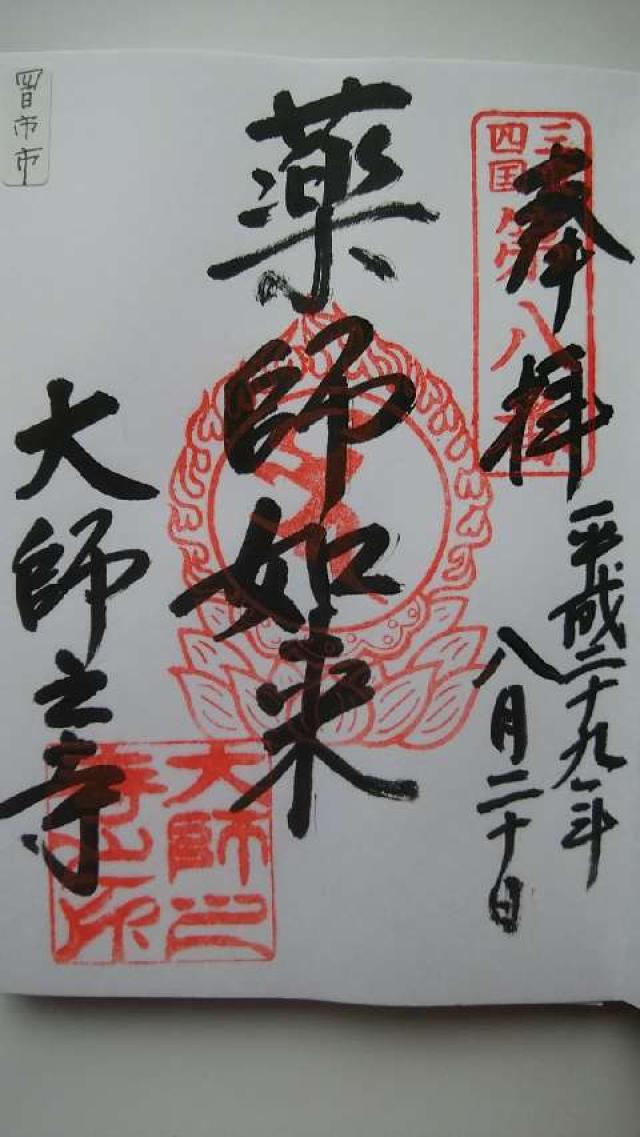 奉拝
三重
四国
第八番
平成二十九年
八月二十日
薬師如来
大師之寺
大師之
寺之印
四日市市